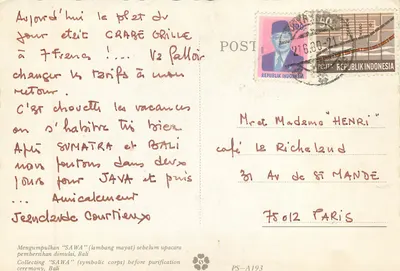 Aujourd'hui le plat du
jour etait CRABE GRILLE
à 7 Francs !... Va falloir
changer les tarifs à mon
retour.
C'est chouette les vacances
on s'habitue très bien
Après SUMATRA et BALI
nous partons dans deux
jours pour JAVA et puis
... Amicalement
Jeanclaude Courtieux
Mengumpulkan "SAWA" (lambang mayat) sebelum upacara
pembersihan dimulai, Bali
Collecting "SAWA" (symbolic corps) before purification
ceremony, Bali
POST
REPUBLIK INDONESIA
REPUBLIK INDONESIA
Mr et Madame "HENRI"
café Le Richeland
31 Av de St MANDE
75012 PARIS
PS-A193